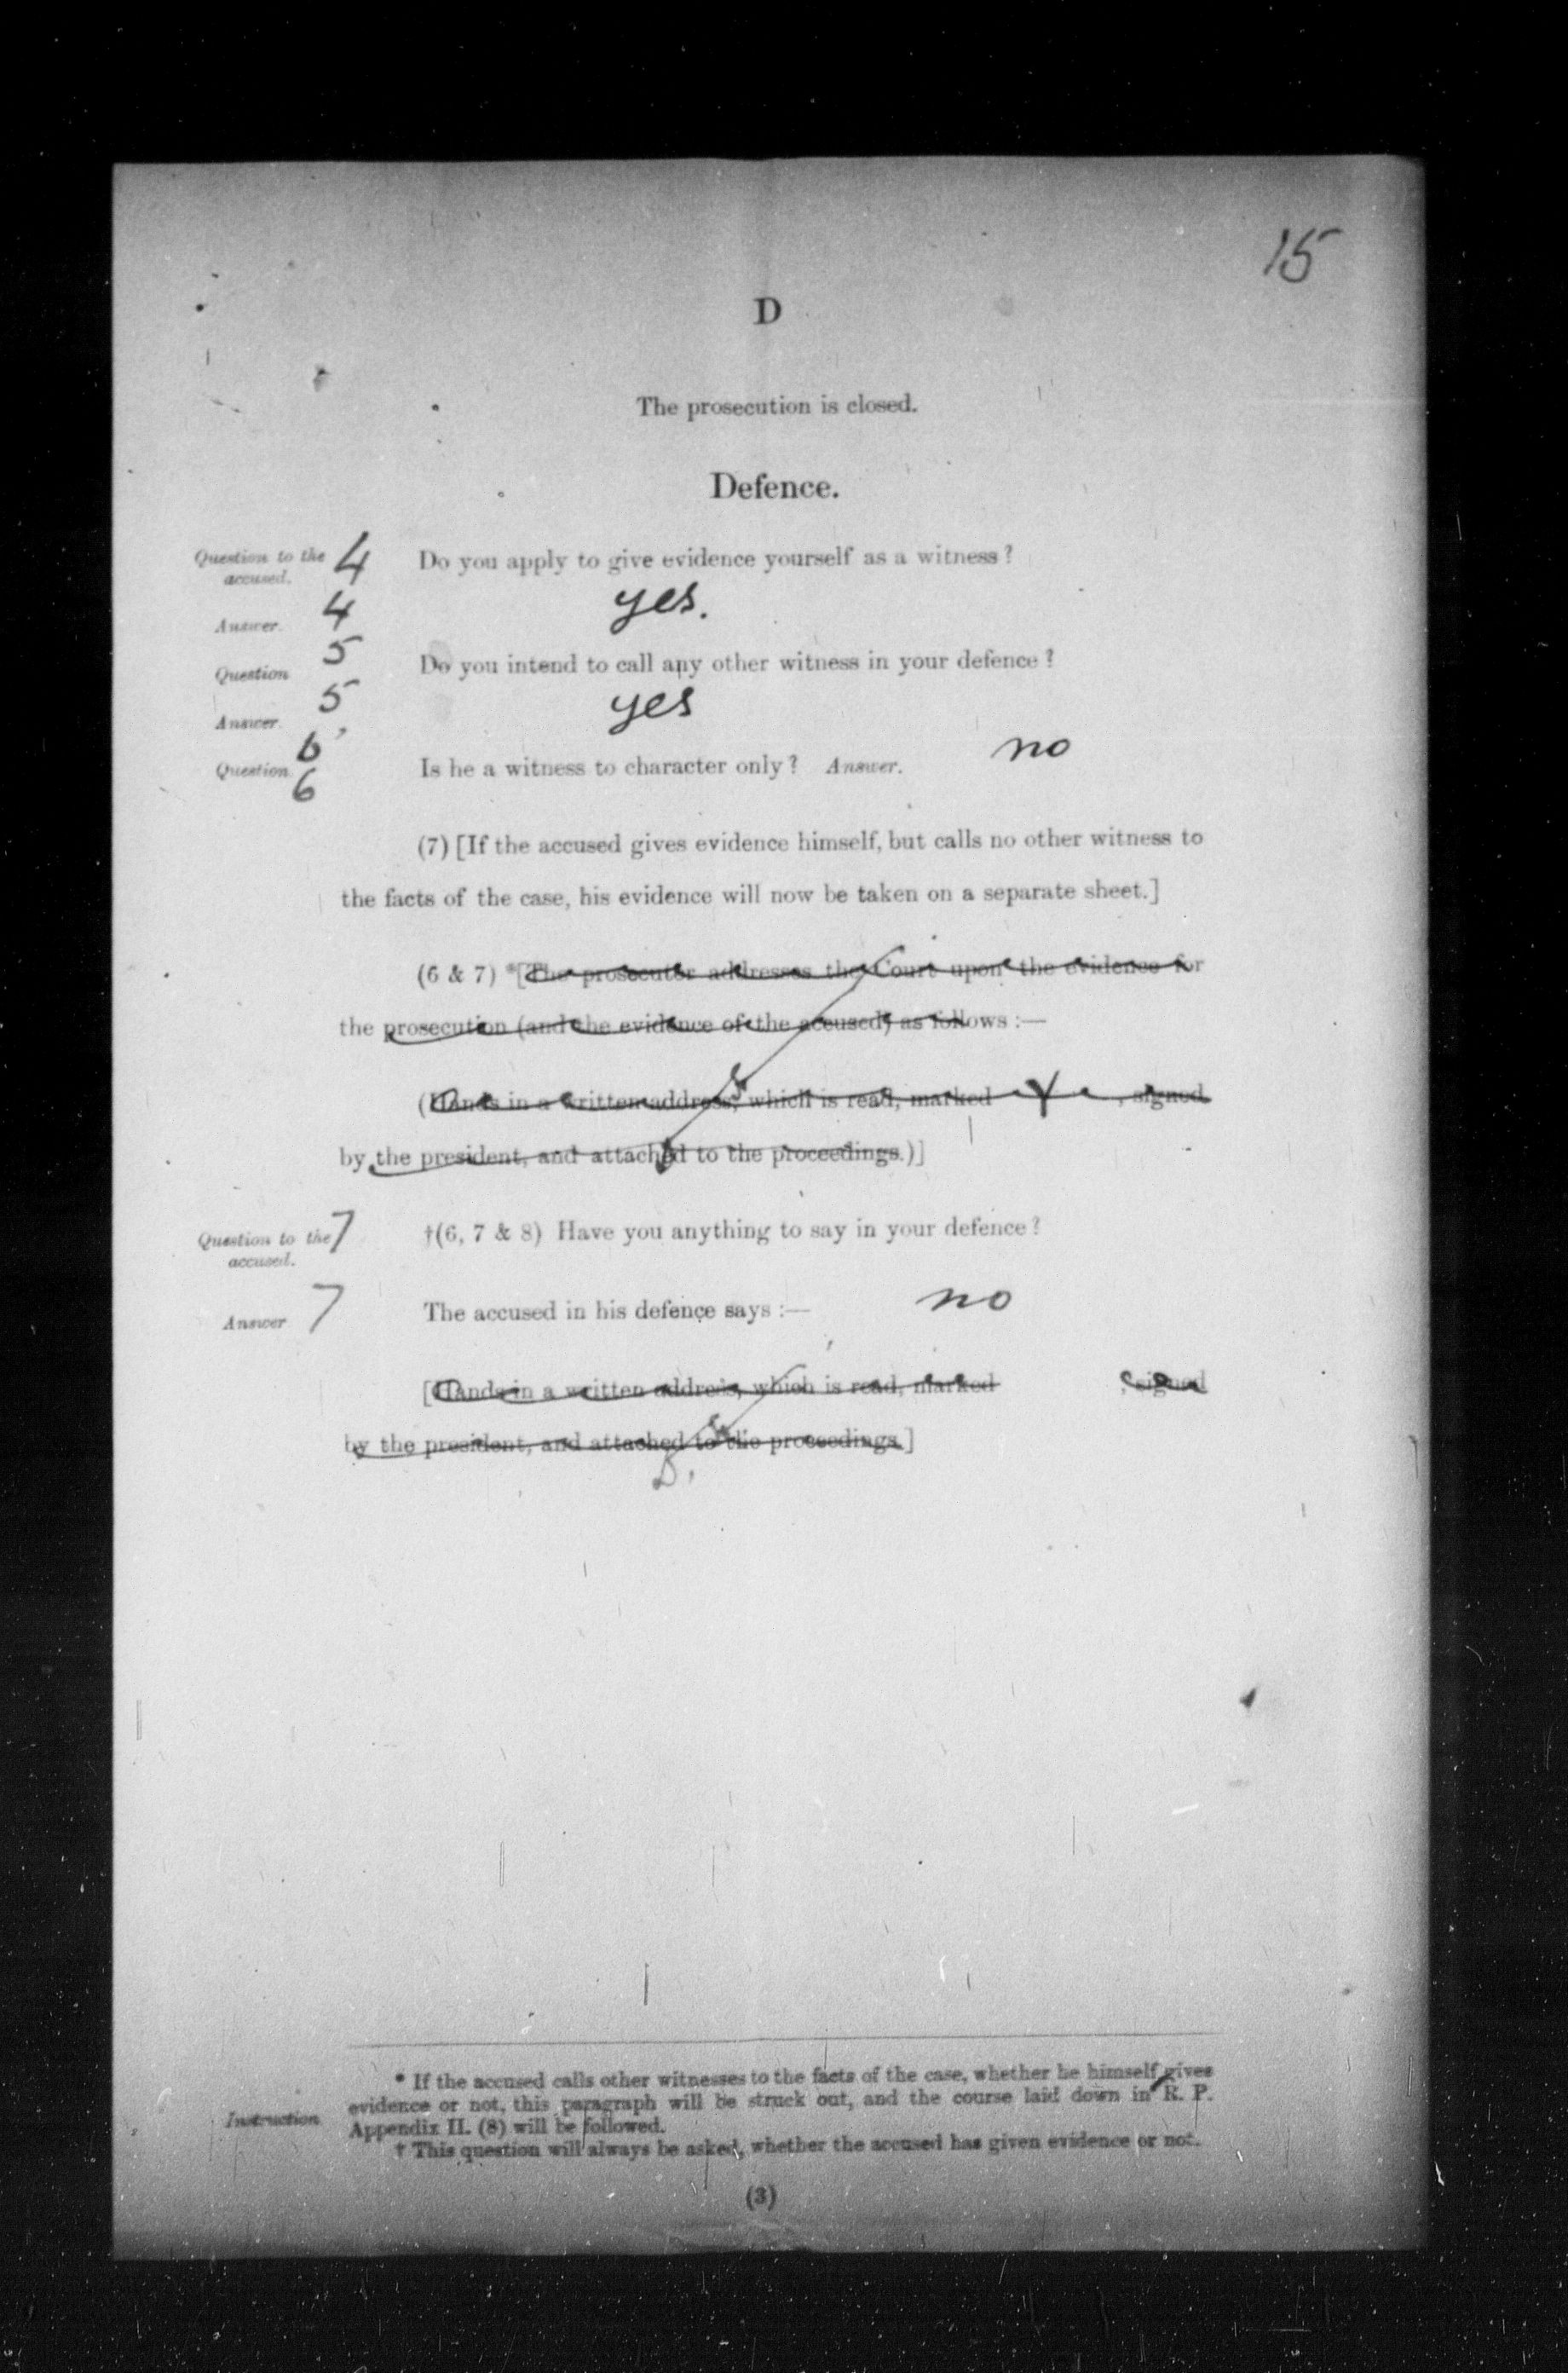 15
D
The prosecution is closed.
Defence.
Question to the accused. 4 Do you apply to give evidence yourself as a witness?
Answer. 4 yes.
Question 5 Do you intend to call any other witness in your defence?
Answer. 5 yes
Question. 6 Is he a witness to character only? Answer. no
6
(7) [If the accused gives evidence himself, but calls no other witness to
the facts of the case, his evidence will now be taken on a separate sheet.]
(6 & 7) *[The prosecutor addresses the Court upon the evidence for
the prosecution (and the evidence of the accused) as follows :—
(Hands in a written address, which is read, marked , signed
by the president, and attached to the proceedings.)]
Question to the accused. 7 †(6, 7 & 8) Have you anything to say in your defence?
Answer 7 The accused in his defence says :— no
[Hands in a written address, which is read, marked , signed
by the president, and attached to the proceedings.]
* If the accused calls other witnesses to the facts of the case, whether he himself gives
evidence or not, this paragraph will be struck out, and the course laid down in R. P.
Instruction Appendix II. (8) will be followed.
† This question will always be asked, whether the accused has given evidence or not.
(3)